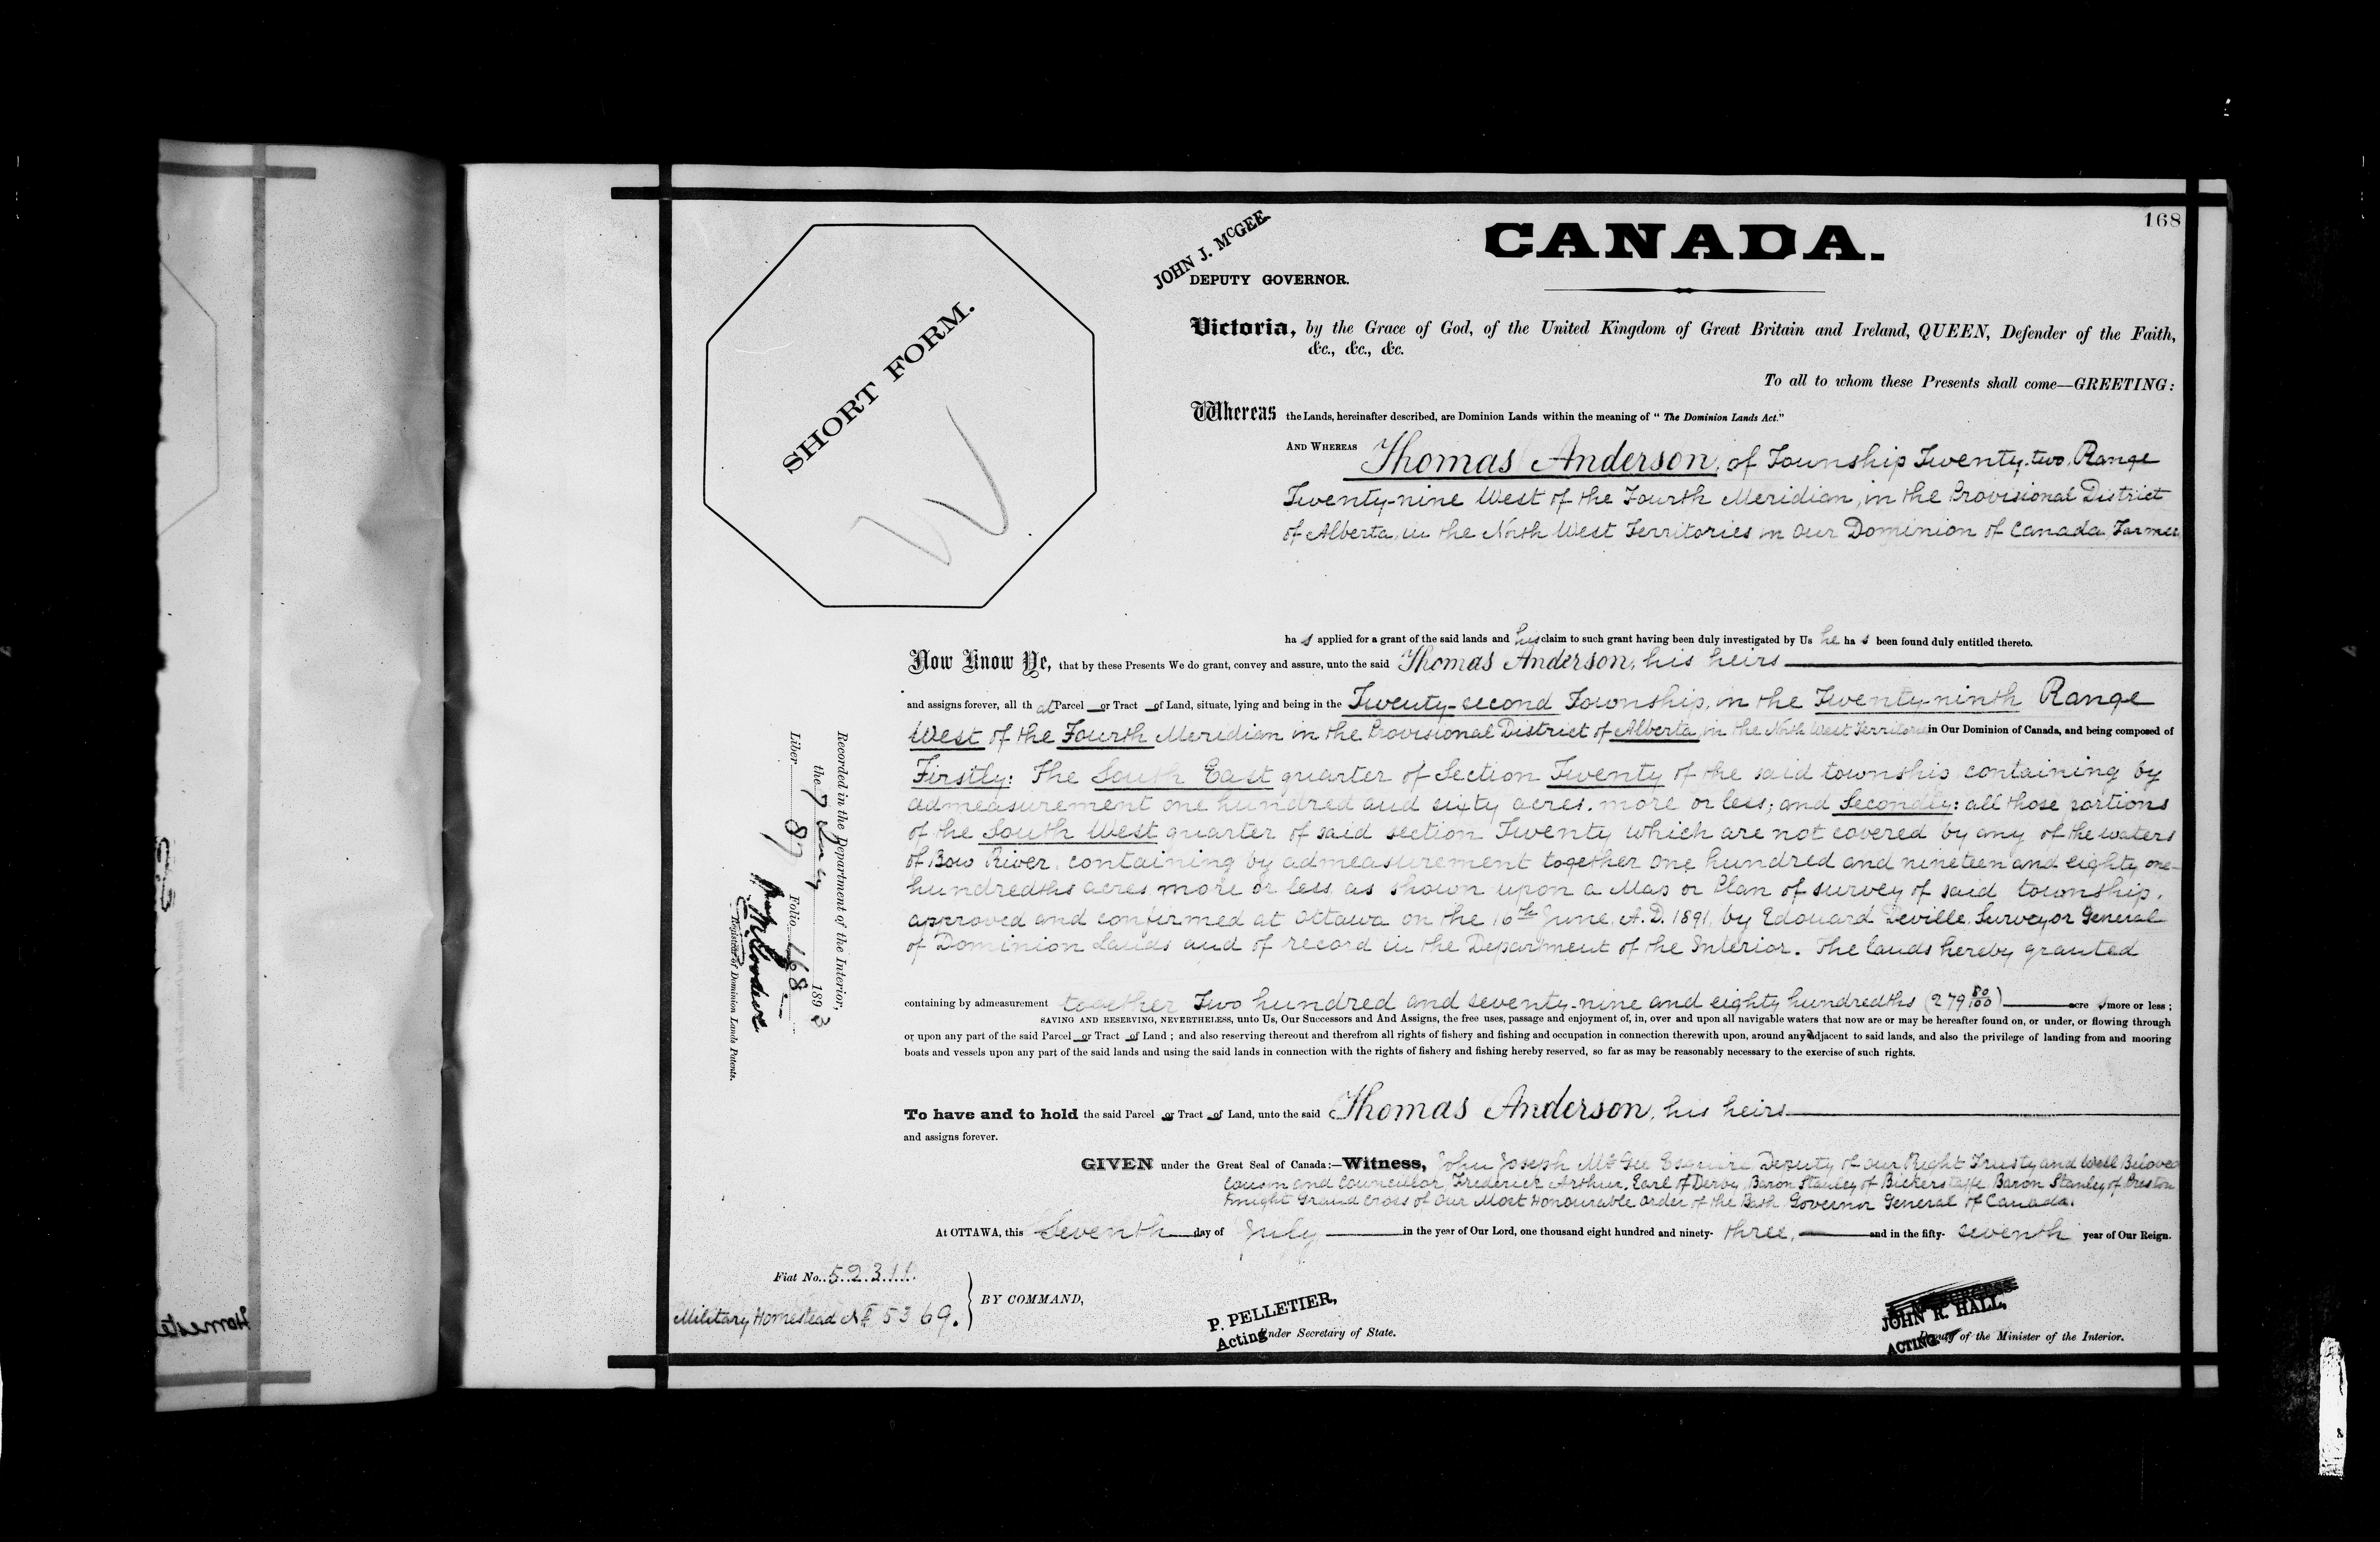 168
CANADA.
JOHN J. McGEE
DEPUTY GOVERNOR.
SHORT FORM.
Victoria, by the Grace of God, of the United Kingdom of Great Britain and Ireland, QUEEN, Defender of the Faith,
&c., &c., &c.
To all to whom these Presents shall come—GREETING:
Whereas the Lands, hereinafter described, are Dominion Lands within the meaning of "The Dominion Lands Act."
AND WHEREAS Thomas Anderson, of Township Twenty-two, Range
Twenty-nine West of the Fourth Meridian, in the Provisional District
of Alberta, in the North West Territories in Our Dominion of Canada, Farmer
ha s applied for a grant of the said lands and his claim to such grant having been duly investigated by Us he ha s been found duly entitled thereto.
Now Know Ye, that by these Presents We do grant, convey and assure, unto the said Thomas Anderson, his heirs
and assigns forever, all th at Parcel or Tract of Land, situate, lying and being in the Twenty-second Township, in the Twenty-ninth Range
West of the Fourth Meridian in the Provisional District of Alberta, in the North West Territories in Our Dominion of Canada, and being composed of
Firstly: The South East quarter of Section Twenty of the said township containing by
admeasurement one hundred and sixty acres, more or less; and Secondly: all those portions
of the South West quarter of said section Twenty which are not covered by any of the waters
of Bow River, containing by admeasurement together one hundred and nineteen and eighty one-
hundredths acres more or less as shown upon a Map or Plan of survey of said township,
approved and confirmed at Ottawa on the 16th June, A.D. 1891, by Edouard Deville, Surveyor General
of Dominion Lands and of record in the Department of the Interior. The lands hereby granted
containing by admeasurement together Two hundred and seventy-nine and eighty hundredths (279 80/100) acre s more or less;
SAVING AND RESERVING, NEVERTHELESS, unto Us, Our Successors and And Assigns, the free uses, passage and enjoyment of, in, over and upon all navigable waters that now are or may be hereafter found on, or under, or flowing through
or upon any part of the said Parcel or Tract of Land; and also reserving thereout and therefrom all rights of fishery and fishing and occupation in connection therewith upon, around any adjacent to said lands, and also the privilege of landing from and mooring
boats and vessels upon any part of the said lands and using the said lands in connection with the rights of fishery and fishing hereby reserved, so far as may be reasonably necessary to the exercise of such rights.
To have and to hold the said Parcel or Tract of Land, unto the said Thomas Anderson, his heirs
and assigns forever.
GIVEN under the Great Seal of Canada:—Witness, John Joseph McGee Esquire, Deputy of Our Right Trusty and Well Beloved
Cousin and Councillor, Frederick Arthur, Earl of Derby, Baron Stanley of Bickerstaffe, Baron Stanley of Preston
Knight Grand Cross of Our Most Honourable Order of the Bath Governor General of Canada.
At OTTAWA, this Seventh day of July in the year of Our Lord, one thousand eight hundred and ninety- three, and in the fifty- seventh year of Our Reign.
Fiat No. 52311.
Military Homestead No 5369.
BY COMMAND,
P. PELLETIER,
Acting Under Secretary of State.
JOHN R. HALL,
ACTING Deputy of the Minister of the Interior.
Recorded in the Department of the Interior,
the 7 189 3
Liber 87 Folio 168
Registrar of Dominion Lands Patents.
Homeste